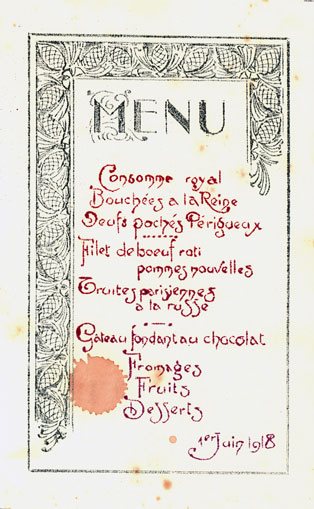 MENU
Consomme royal
Bouchées a la Reine
Oeufs pochés Périgueux
Filet de boeuf roti
pommes nouvelles
Truites parisiennes
à la russe
Gateau fondant au chocolat
Fromages
Fruits
Desserts
1er Juin 1918